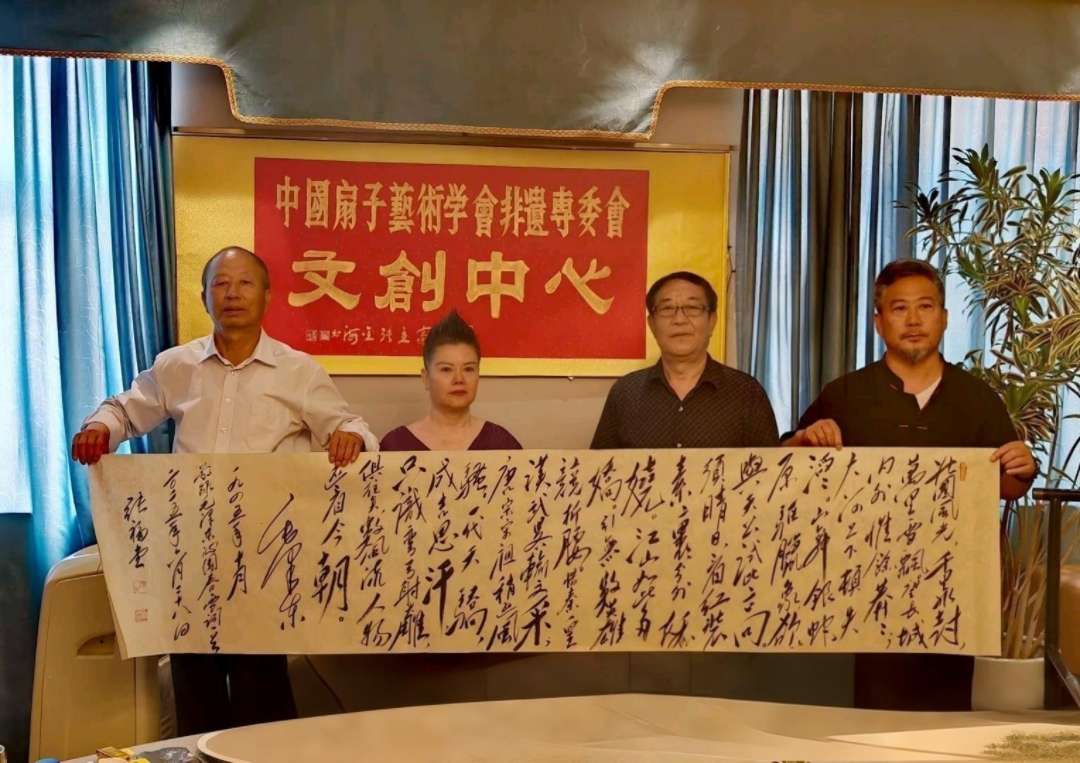 中國扇子藝術学會非遺専委會
文創中心
北國風光，千里冰封，
萬里雪飄。望長城
内外，惟餘莽莽；
大河上下，頓失
滔滔。山舞銀蛇，
原馳臘象，欲
與天公試比高。
須晴日，看紅裝
素裹，分外妖
嬈。江山如此多
嬌，引無數英雄
競折腰。惜秦皇
漢武，畧輸文采；
唐宗宋祖，稍遜風
騷。一代天驕，
成吉思汗，
只識彎弓射雕。
俱往矣，數風流人物，
還看今朝。
毛澤東
一九四五年十月
毛澤東沁園春雪詞
二〇二五年六月二十八日
張福